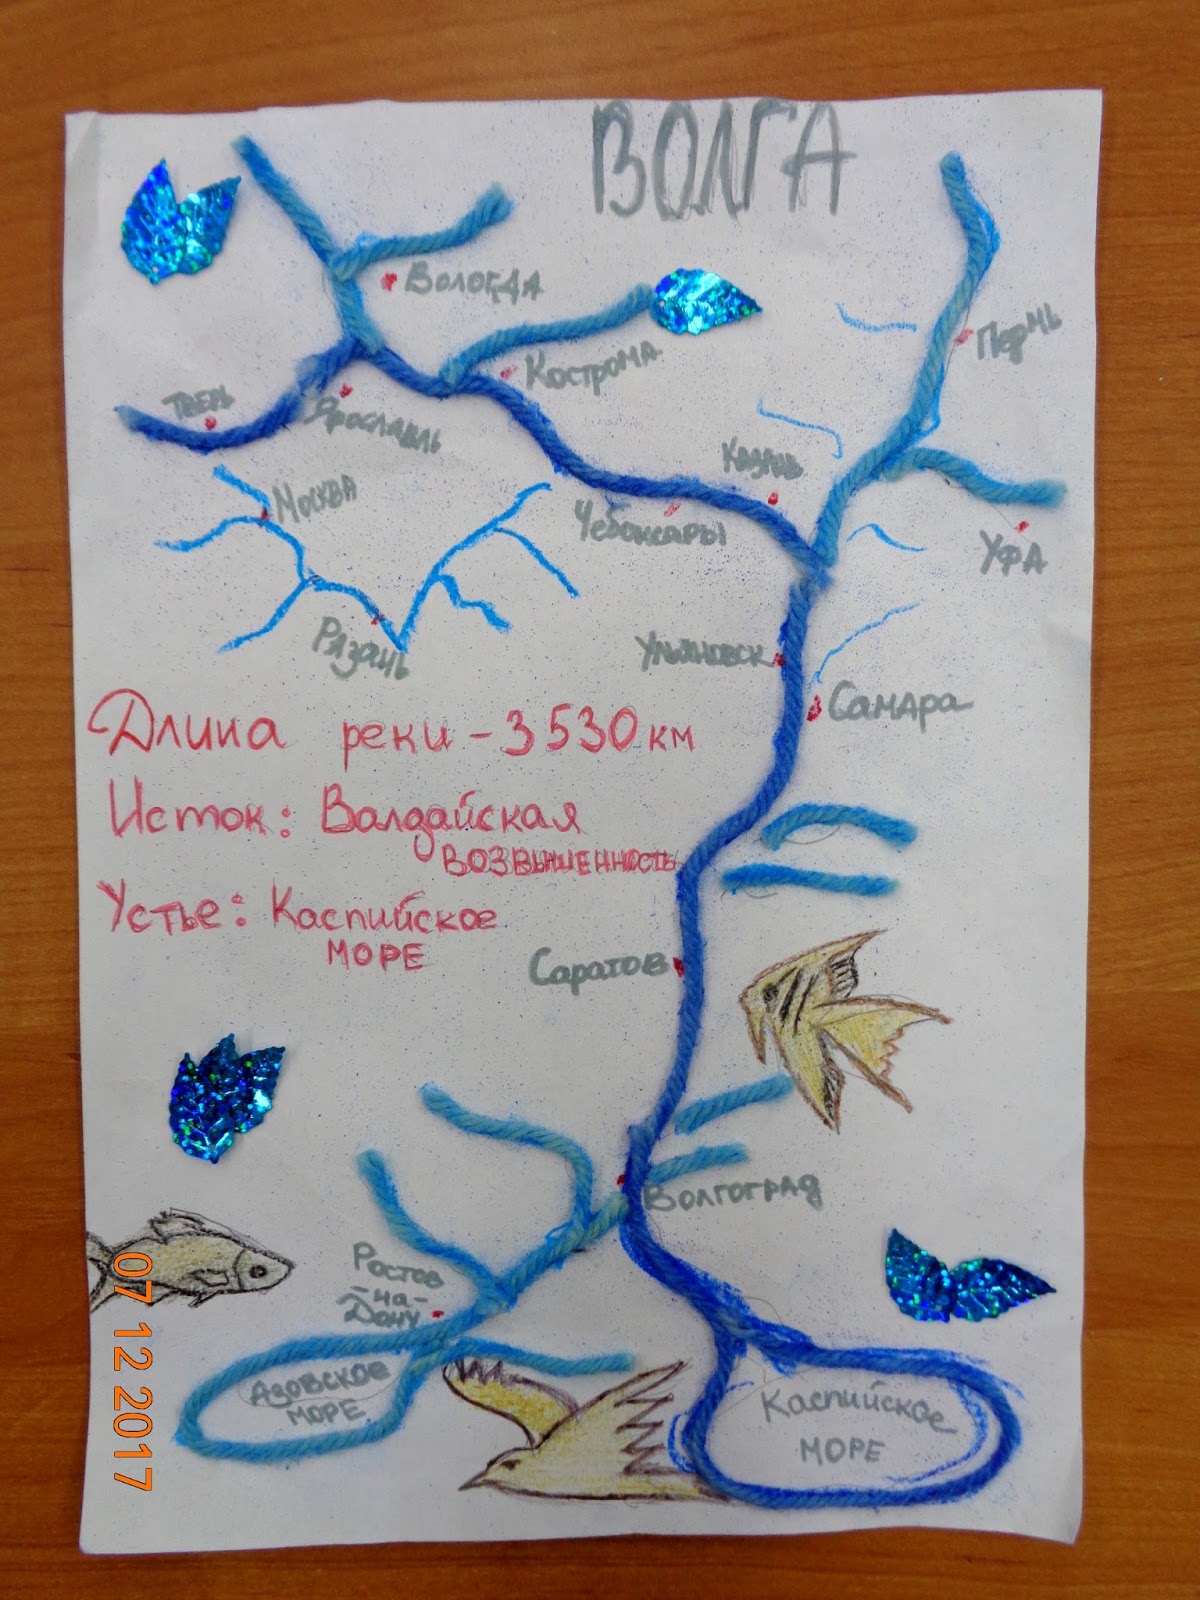 ВОЛГА
Вологда
Пермь
Кострома
Тверь
Ярославль
Казань
Москва
Чебоксары
Уфа
Рязань
Ульяновск
Самара
Длина реки - 3530 км
Исток: Валдайская
возвышенность
Устье: Каспийское
море
Саратов
Волгоград
Ростов
-на-
Дону
Азовское
море
Каспийское
море
07 12 2017